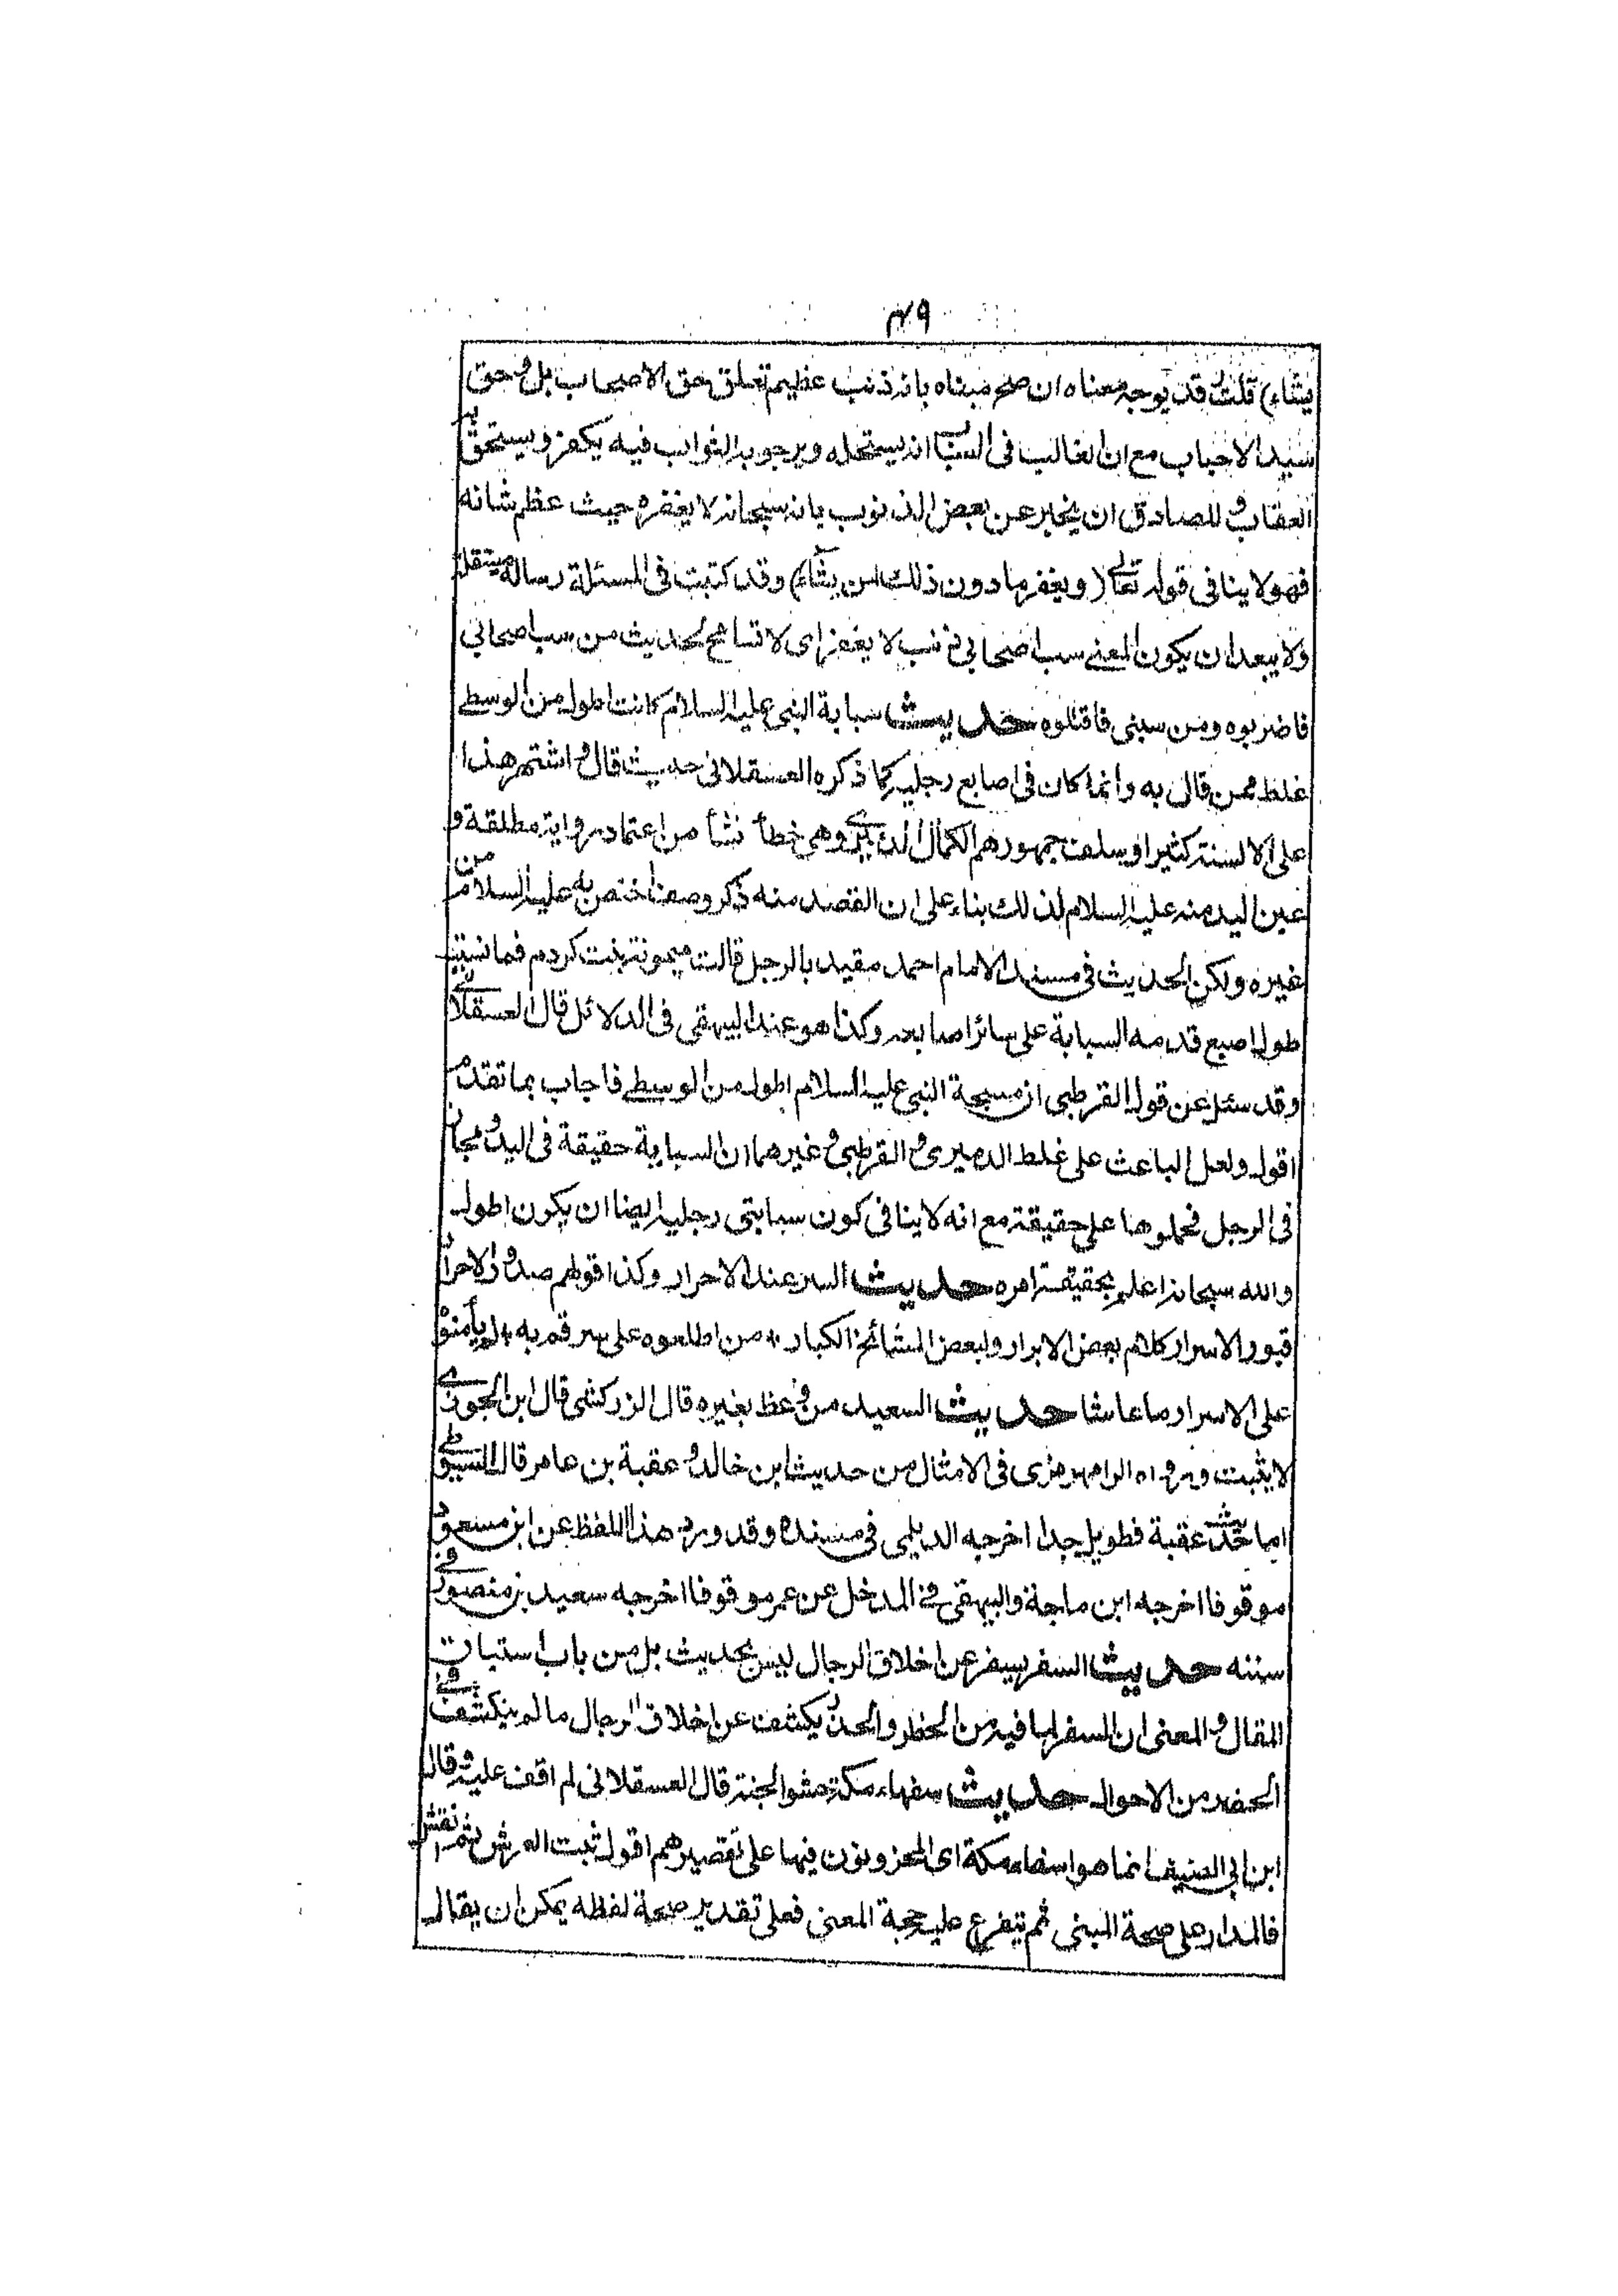 ٤٩
يشاء) قلت وقد يوجه معناه ان صح مبناه بانه ذنب عظيم تعلق بحق الاصحاب بل وحق
سيد الاحباب مع ان الغالب في الساب انه يستحله ويرجو به الثواب فيه يكفر ويستحق به
العقاب وللصادق ان يخبر عن بعض الذنوب بانه سبحانه لا يغفره حيث عظم شانه
فهو لا ينافى قوله تعالى (ويغفر ما دون ذلك لمن يشاء) وقد كتبت فى المسئلة رسالة مستقلة
ولا يبعد ان يكون المعنى سب اصحابى ذنب لا يغفر اى لا تسامح لحديث من سب اصحابى
فاضربوه ومن سبنى فاقتلوه حديث سبابة النبى عليه السلام كانت اطول من الوسطى
غلط ممن قال به وانما كان فى اصابع رجليه كما ذكره العسقلانى حديث قال واشتهر هذا
على الالسنة كثيرا وسلف جمهورهم الكمال الدميرى وهى خطأ نشأ من اعتماد رواية مطلقة و
عين اليد منه عليه السلام لذلك بناء على ان القصد منه ذكر وصف اختص به عليه السلام من
غيره ولكن الحديث فى مسند الامام احمد مقيد بالرجل قالت ميمونة بنت كردم فما نسيت
طول اصبع قدمه السبابة على سائر اصابعه وكذا هو عند البيهقى فى الدلائل قال العسقلانى
وقد سئل عن قول القرطبى ان مسبحة النبى عليه السلام اطول من الوسطى فاجاب بما تقدم
اقول ولعل الباعث على غلط الدميرى والقرطبى وغيرهما ان السبابة حقيقة فى اليد ومجاز
فى الرجل فحملوها على حقيقة مع انه لا ينافى كون سبابتى رجليه ايضا ان يكون اطول
والله سبحانه اعلم بحقيقة امره حديث السر عند الاحرار وكذا قولهم صدور الاحرار
قبور الاسرار كلام بعض الابرار ولبعض المشائخ الكبار * من اطلعوه على سر فم به * لم يأمنوه
على الاسرار ما عاشا حديث السعيد من وعظ بغيره قال الزركشى قال ابن الجوزى
لا يثبت ورواه الرامهرمزى فى الامثال من حديث ابن خالد وعقبة بن عامر قال السيوطى
اما حديث عقبة فطويل جدا اخرجه الديلمى فى مسنده وقد ورد هذا اللفظ عن ابن مسعود
موقوفا اخرجه ابن ماجة والبيهقى فى المدخل عن عمر موقوفا اخرجه سعيد بن منصور فى
سننه حديث السفر يسفر عن اخلاق الرجال ليس بحديث بل من باب استيات
المقال والمعنى ان السفر لما فيه من الخطر والحذر يكشف عن اخلاق الرجال ما لم ينكشف فى
الحضر من الاحوال حديث سفهاء مكة حشو الجنة قال العسقلانى لم اقف عليه وقال
ابن ابى الصيف انما هو اسفاء مكة اى المحزونون فيها على تقصيرهم اقول ثبت العرش ثم انقش
فالمدار على صحة المبنى ثم يتفرع عليه صحة المعنى فعلى تقدير صحة لفظه يمكن ان يقال